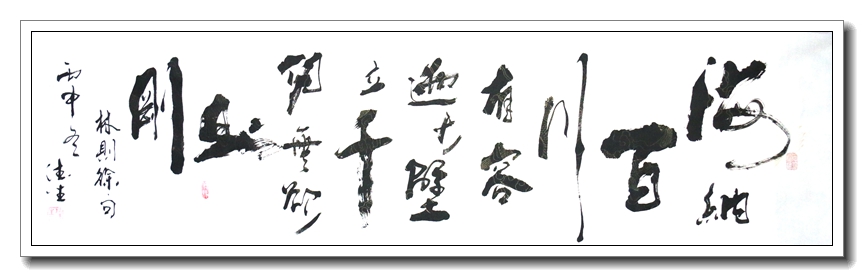 海納
百
川
有容
迺大壁
立千
仞無欲
則
剛
林則徐句
丙申冬